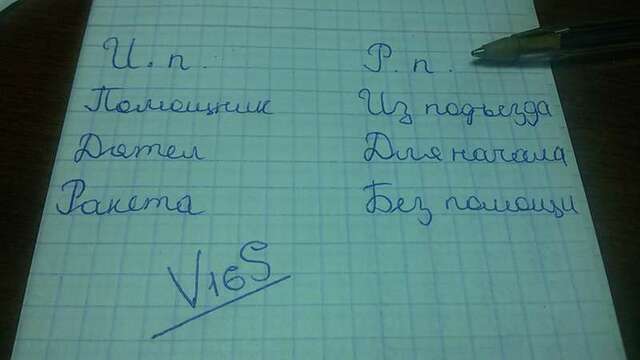 И. п. Р. п.
Помощник Из подъезда
Дятел Для начала
Ракета Без помощи
V16S